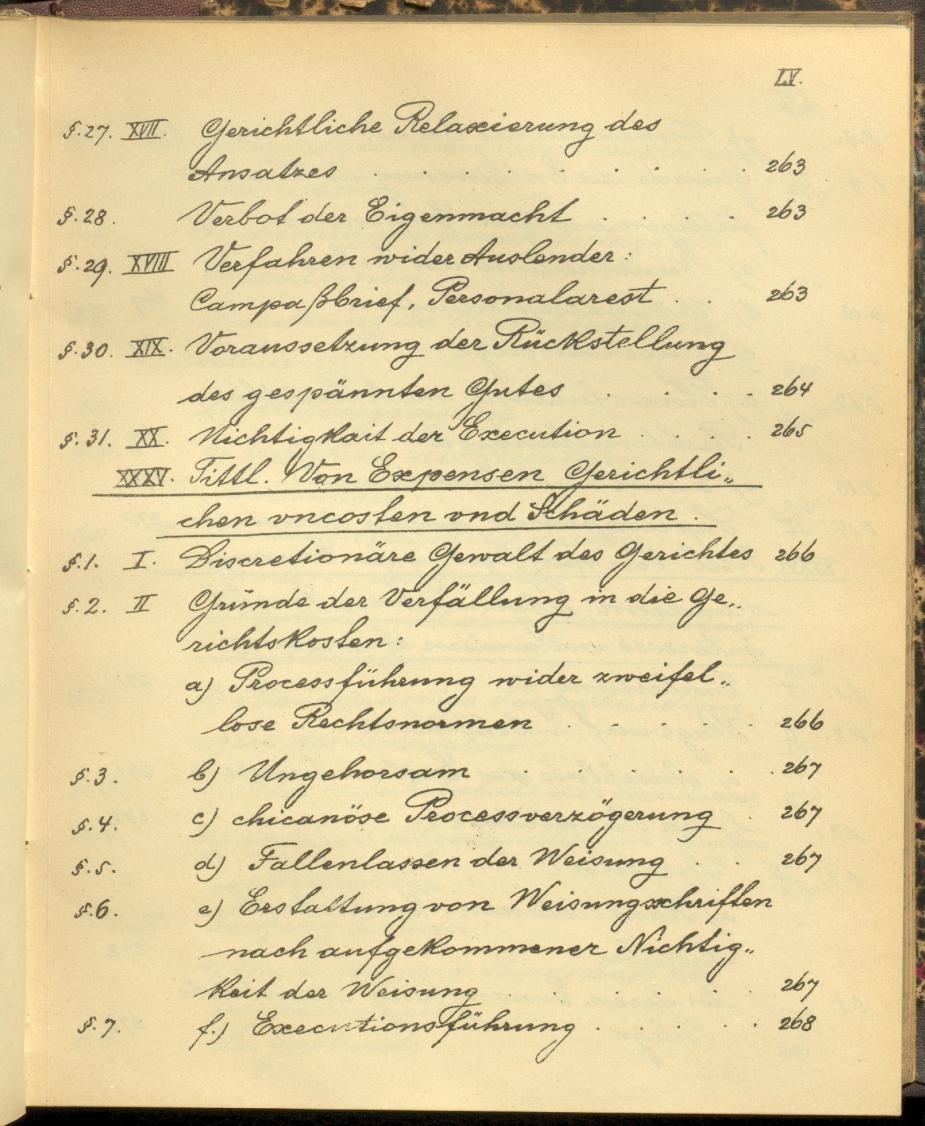 LV.
§.27. XVII. Gerichtliche Relaxierung des
Ansatzes . . . . . . . . 263
§.28. Verbot der Eigenmacht . . . . 263
§.29. XVIII Verfahren wider Auslender:
Campaßbrief, Personalarest . . 263
§.30. XIX. Voraussetzung der Rückstellung
des gespännten Gutes . . . . 264
§.31. XX. Nichtigkait der Execution . . . . 265
XXXV. Tittl. Von Expensen Gerichtli„
chen vncosten vnd Schäden.
§.1. I. Discretionäre Gewalt des Gerichtes 266
§.2. II Gründe der Verfällung in die Ge„
richtskosten:
a) Processführung wider zweifel„
lose Rechtsnormen . . . . . 266
§.3. b) Ungehorsam . . . . . 267
§.4. c) chicanöse Processverzögerung . 267
§.5. d) Fallenlassen der Weisung . . . 267
§.6. e) Erstattung von Weisungsschriften
nach aufgekommener Nichtig„
keit der Weisung . . . . . . 267
§.7. f.) Executionsführung . . . . . 268